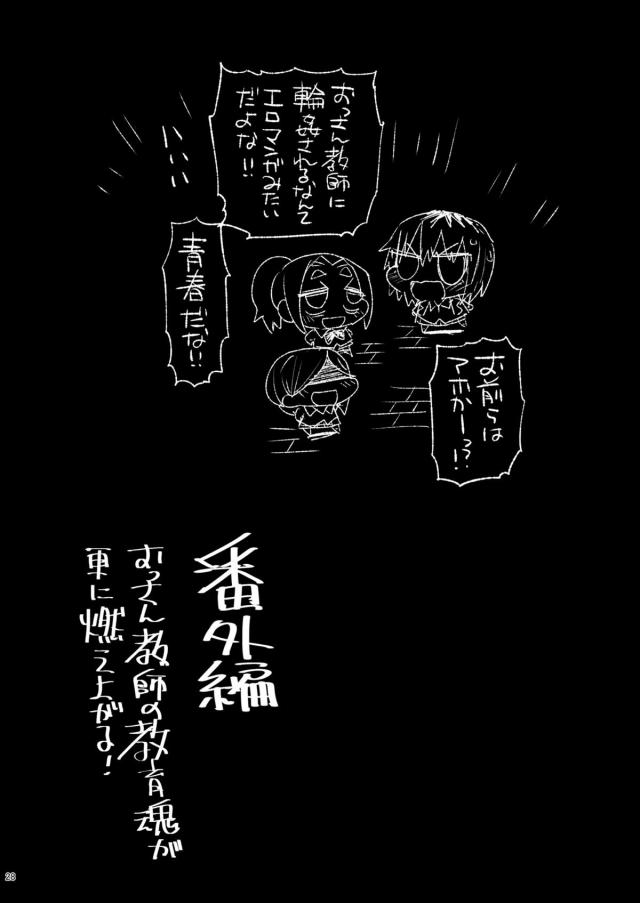 おっさん教師に
輪姦されるなんて
エロマンガみたい
だよな!!
ハハハハ
青春だな!!
お前らは
アホかーっ?!
番外編
おっさん教師の教育魂が
更に燃え上がる!
28